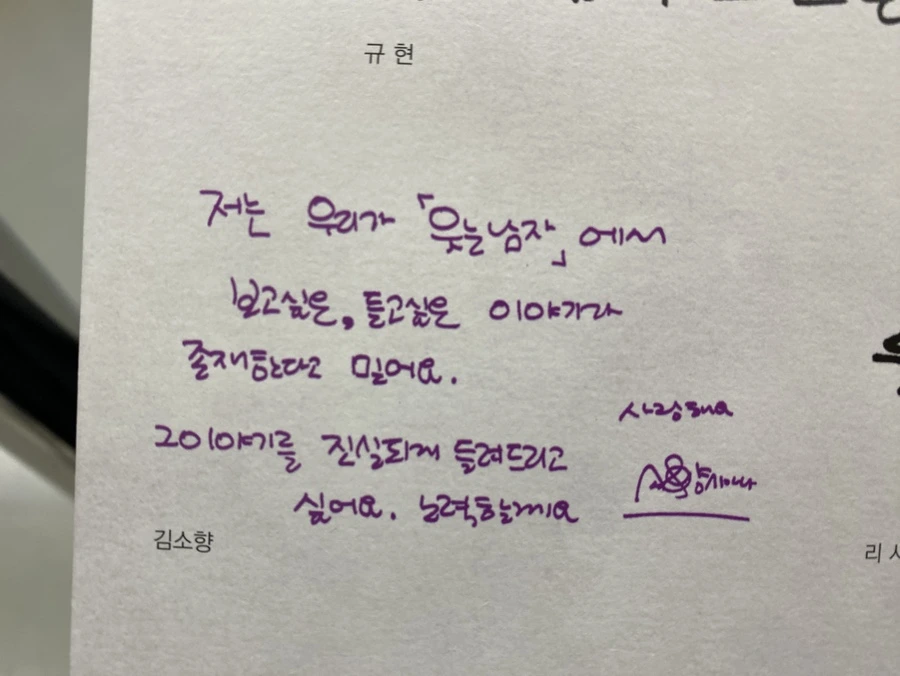 규현
저는 우리가 「웃는남자」에서
보고싶은, 듣고싶은 이야기가
존재한다고 믿어요.
그이야기를 진실되게 들려드리고
싶어요. 노력할께요
사랑해요
김소향
리